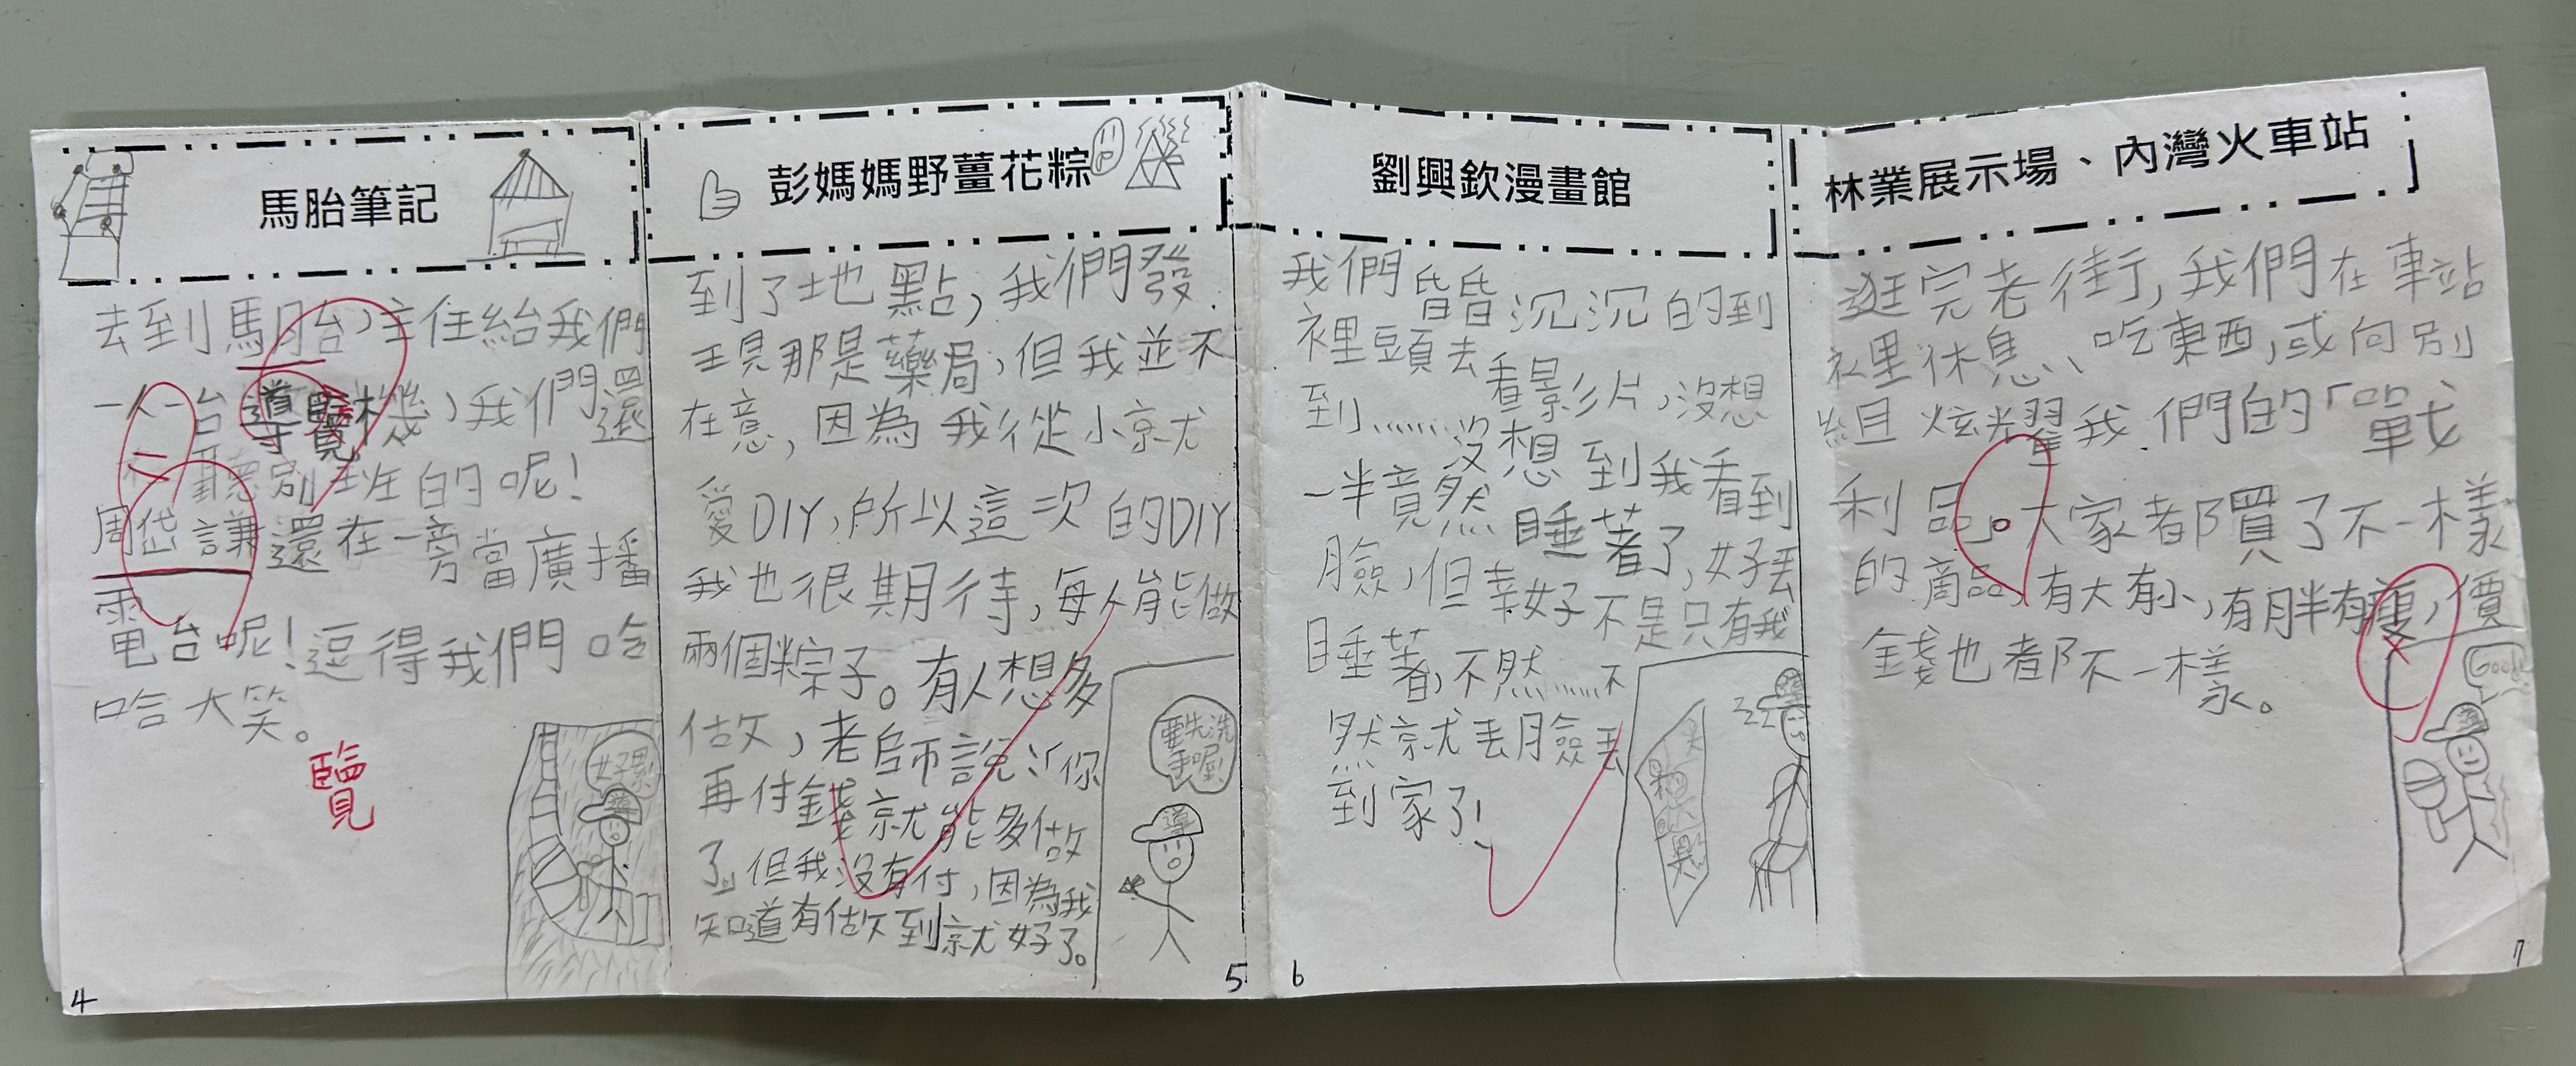 馬胎筆記
去到馬胎，主任給我們
一人一台導覽機，我們還
聽別班的呢！
周岱謙還在一旁當廣播
電台呢！逗得我們哈
哈大笑。
覽
好累
4
彭媽媽野薑花粽
到了地點，我們發
現那是藥局，但我並不
在意，因為我從小就
愛DIY，所以這次的DIY
我也很期待，每人能做
兩個粽子。有人想多
做，老師說：「你
再付錢就能多做
了」但我沒有付，因為我
知道有做到就好了。
要先洗
手喔！
導
5
劉興欽漫畫館
我們昏昏沉沉的到
裡頭去看影片，沒想
到……沒想到我看到
一半竟然睡著了，好丟
臉，但幸好不是只有我
睡著，不然……不
然就丟臉丟
到家了！
zzz
6
林業展示場、內灣火車站
逛完老街，我們在車站
裡休息、吃東西，或向別
組炫耀我們的「戰
利品」。大家都買了不一樣
的商品，有大有小，有胖有瘦，價
錢也都不一樣。
Good!
7